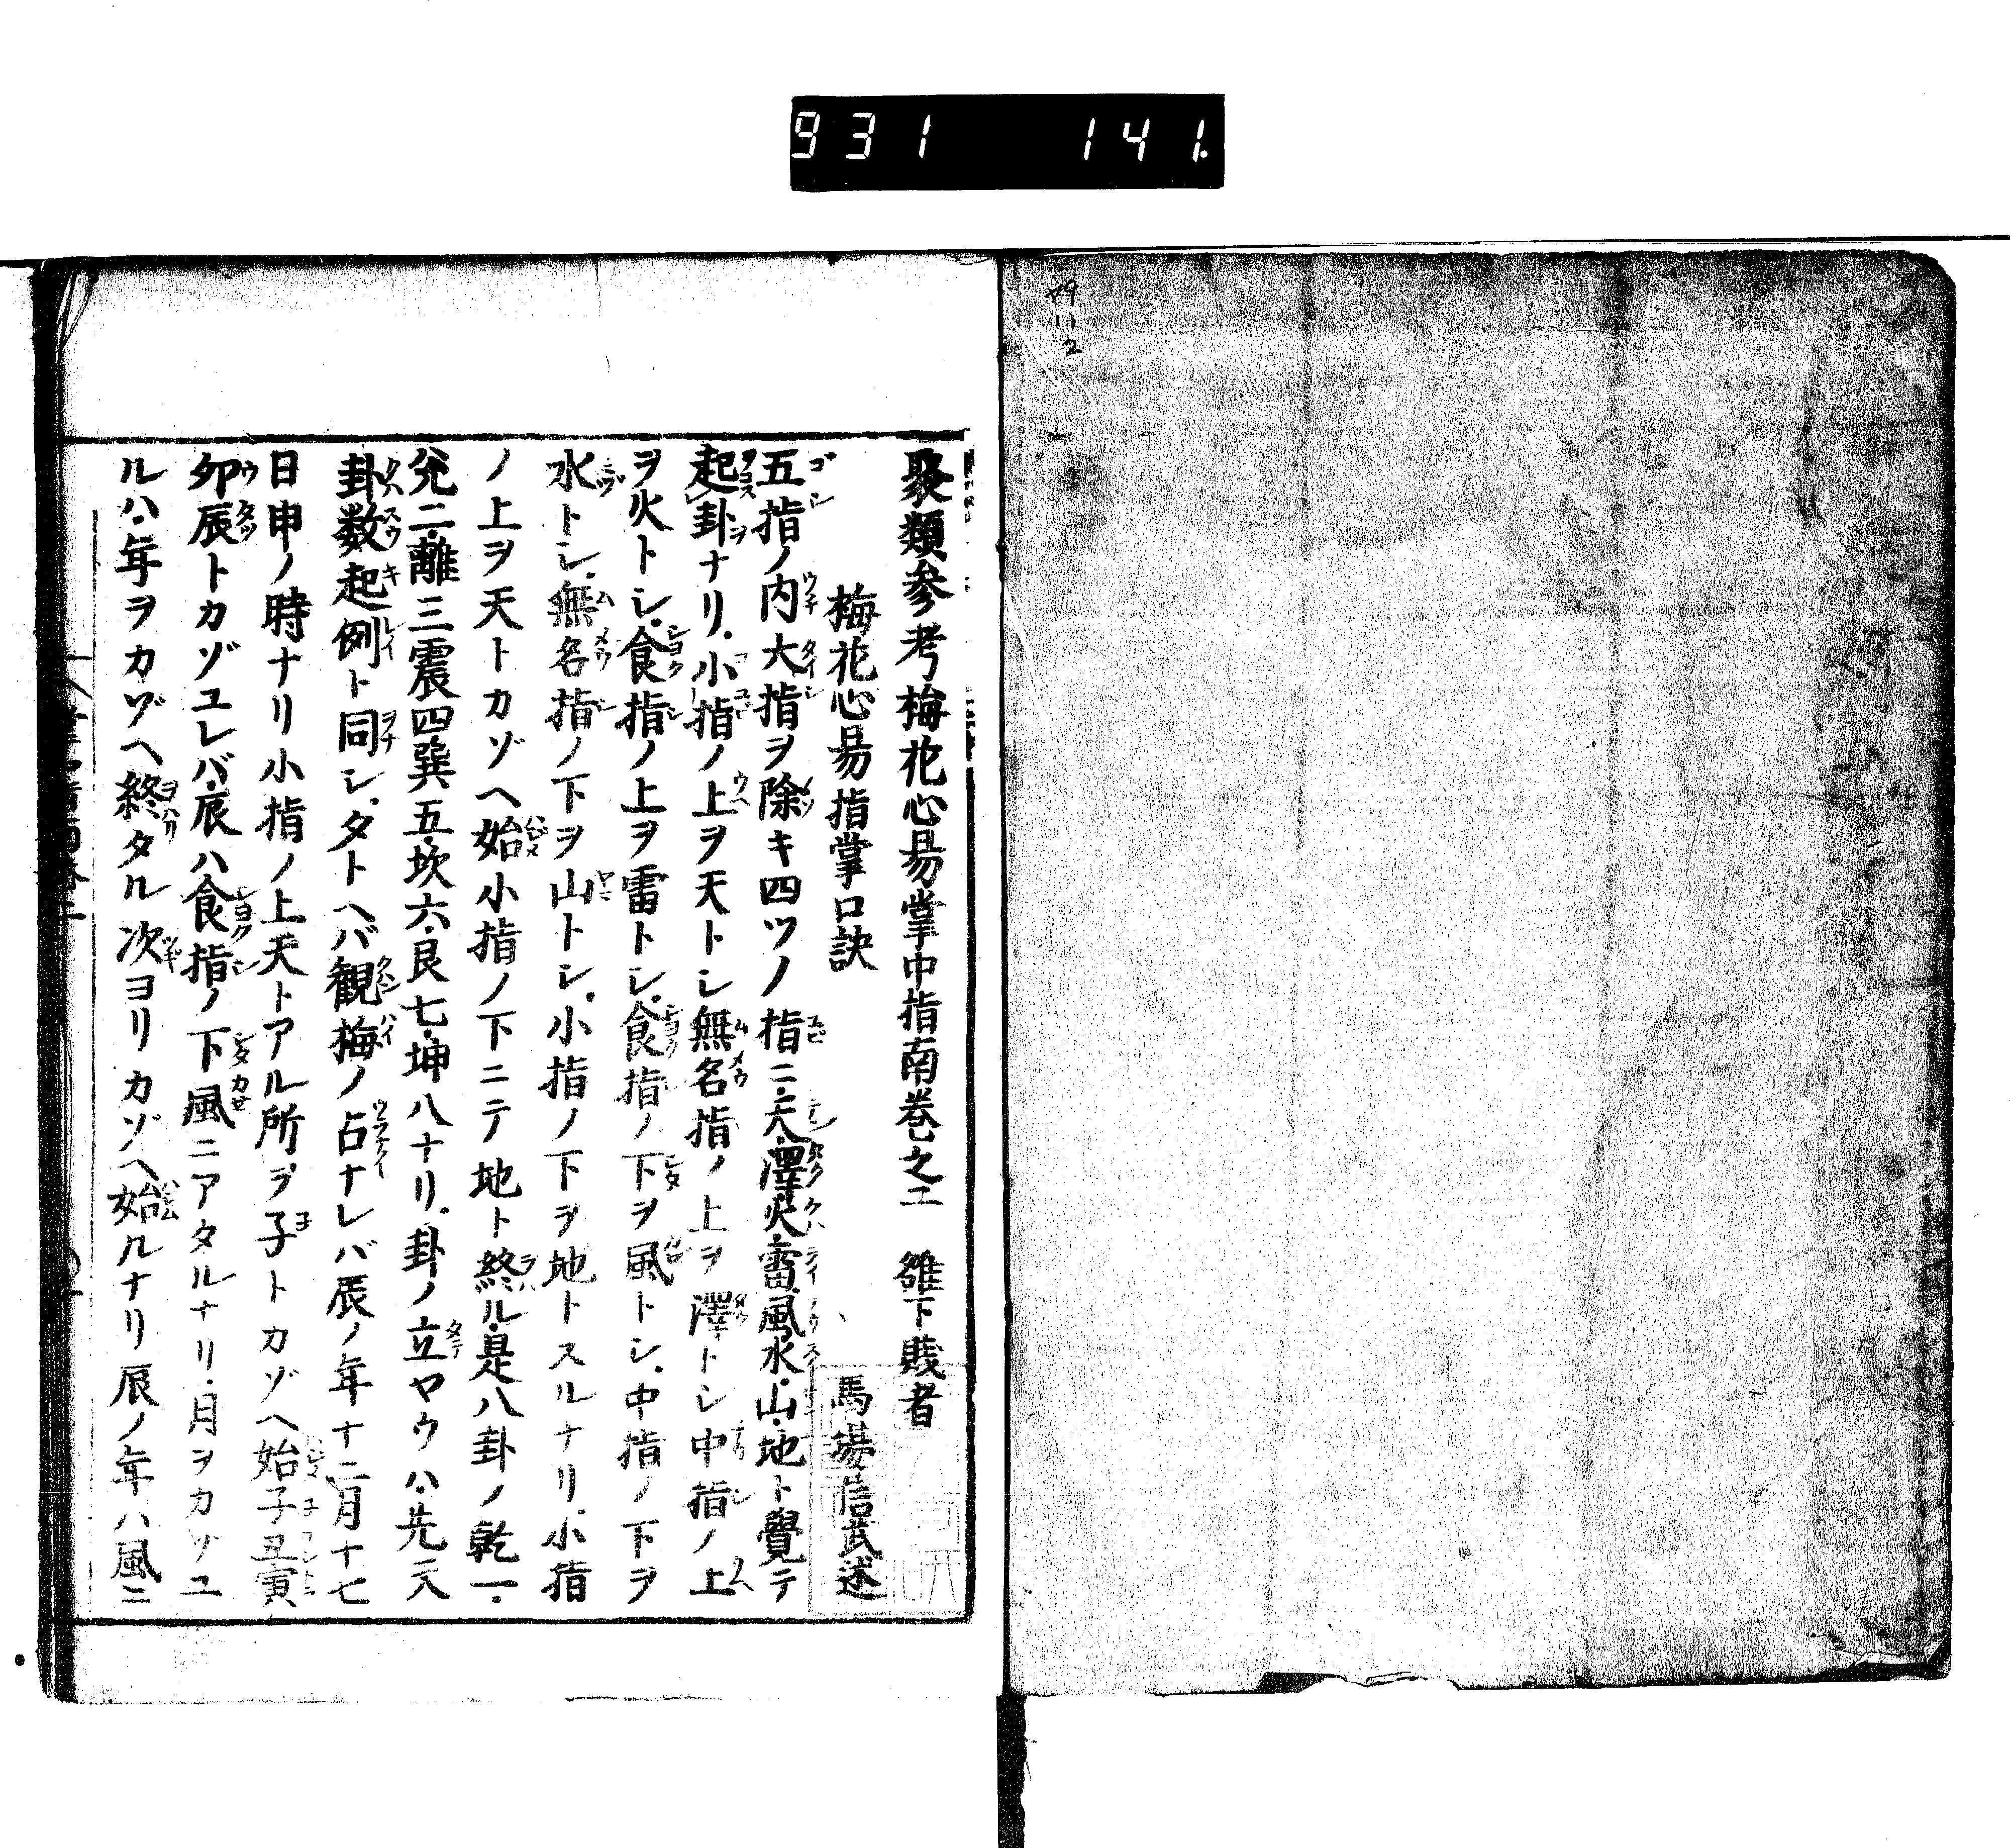 931 141.
49
11
2
聚類参考梅花心易掌中指南巻之二 雒下賤者
梅花心易指掌口訣 馬場信武述
五指ノ内大指ヲ除キ四ツノ指ニ・天・澤・火・雷・風・水・山・地ト覺テ
起卦ナリ・小指ノ上ヲ天トシ無名指ノ上ヲ澤トシ中指ノ上
ヲ火トシ・食指ノ上ヲ雷トシ・食指ノ下ヲ風トシ・中指ノ下ヲ
水トシ・無名指ノ下ヲ山トシ・小指ノ下ヲ地トスルナリ・小指
ノ上ヲ天トカゾヘ始小指ノ下ニテ地ト終ル・是八卦ノ乾一・
兊二・離三震四巽五・坎六・艮七・坤八ナリ・卦ノ立ヤウハ・先天
卦数起例ト同シ・タトヘバ觀梅ノ占ナレバ辰ノ年十二月十七
日申ノ時ナリ小指ノ上天トアル所ヲ子トカゾヘ始子丑寅
卯辰トカゾユレバ・辰ハ食指ノ下風ニアタルナリ・月ヲカゾユ
ルハ・年ヲカゾヘ終タル次ヨリカゾヘ始ルナリ辰ノ年ハ風ニ